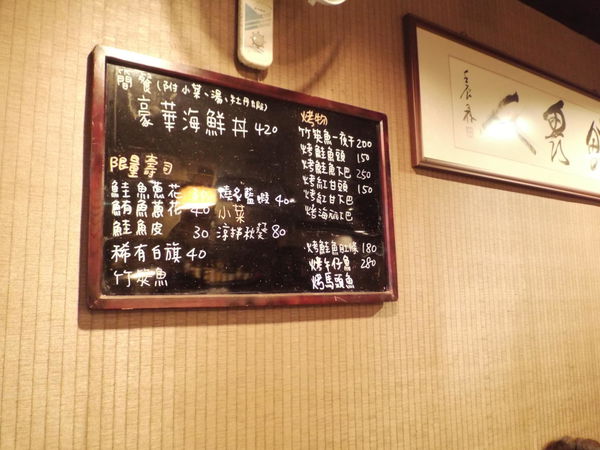 簡餐(附小菜、湯、牡丹蝦)
豪華海鮮丼 420
限量壽司
鮭魚蔥花
鮪魚蔥花 40
鮭魚皮 30
稀有白旗 40
竹筴魚
燒名藍蝦 40
小菜
80
烤物
竹筴魚一夜干 200
烤鮭魚頭 150
烤鮭魚下巴 250
烤紅甘頭 150
烤紅甘下巴
烤海鱺下巴
烤鮭魚肚條 180
烤午仔魚 280
烤馬頭魚